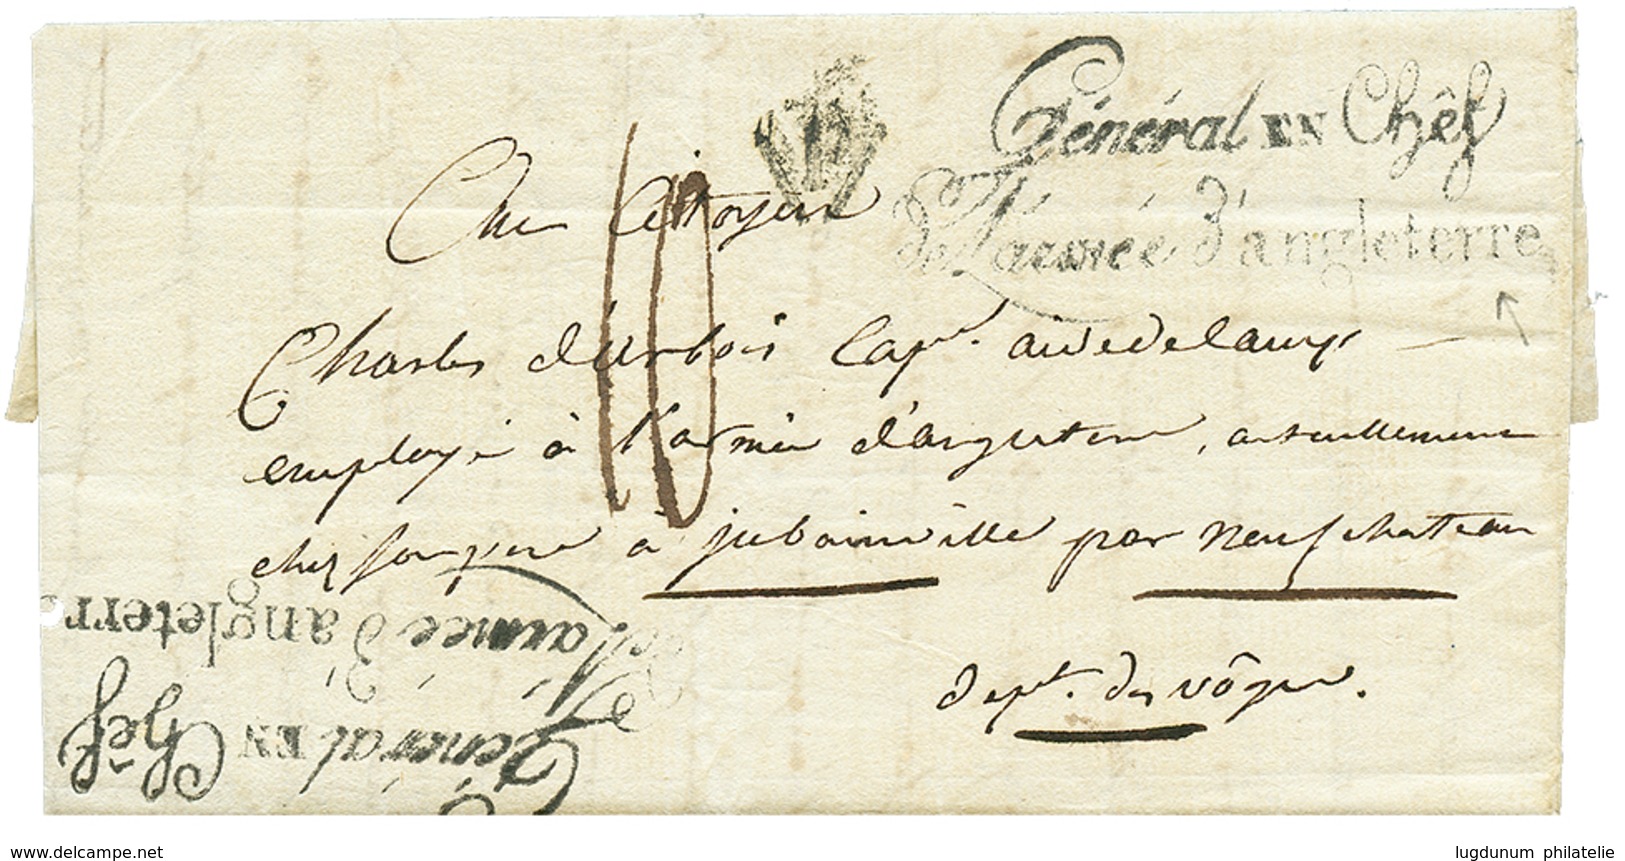 Général EN Chêf
de L'armée d'angleterre
Au Citoyen
10
Charles d'urbois Cap.ne aidedecamp
employé à l'armée d'angleterre, actuellement
chez son pere à jubainville par neufchateau
dept. des vôges.
de L'armée d'angleterr
Général EN Chêf
www.delcampe.net
lugdunum philatelie